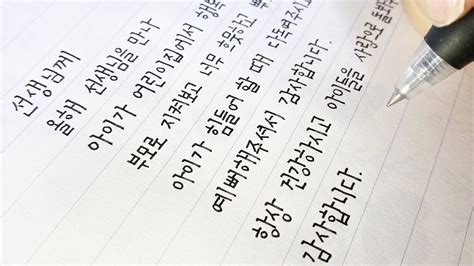 선생님께
올해 선생님을 만나
아이가 어린이집에서 행복
부모로 지켜보고 너무 흐뭇하고
아이가 힘들어 할 때 다독여주시
예뻐해주셔서 감사합니다.
항상 건강하시고 아이들을 사랑으로
감사합니다.